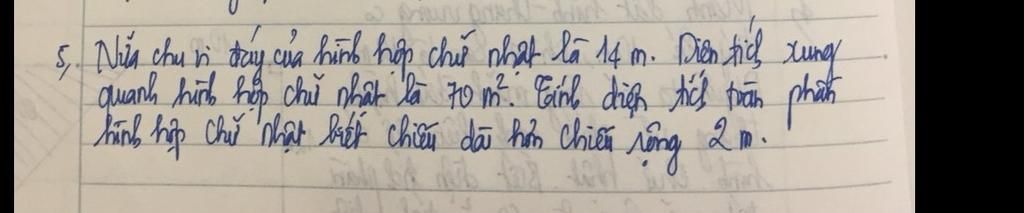 5, Nửa chu vi đáy của hình hộp chữ nhật là 14 m. Diện tích xung
quanh hình hộp chữ nhật là 70 m². Tính diện tích toàn phần
hình hộp chữ nhật biết chiều dài hơn chiều rộng 2 m.